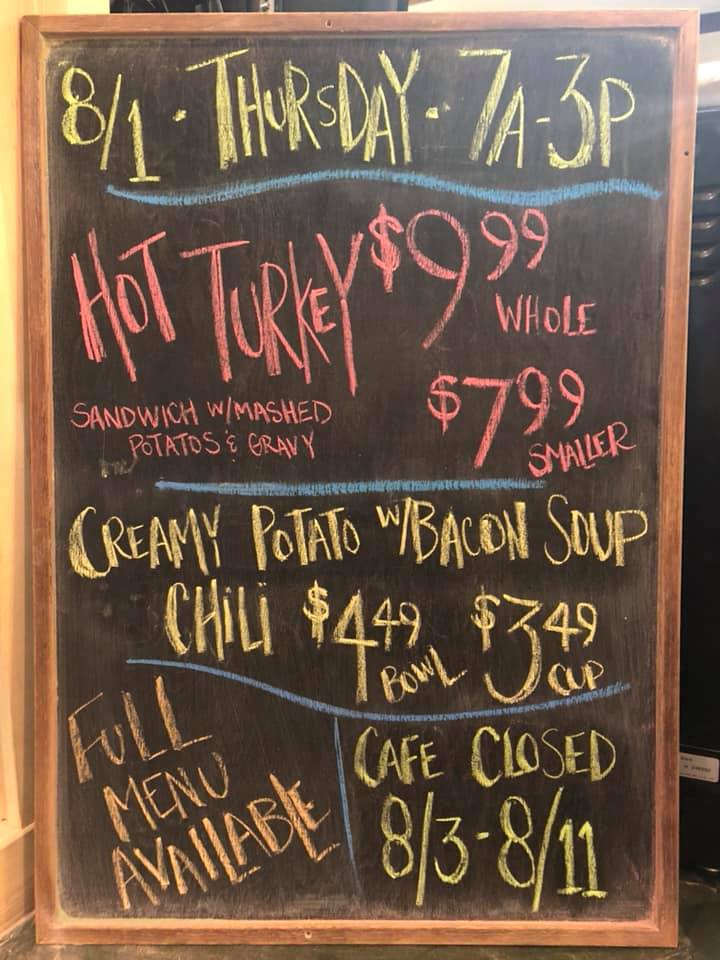 8/1 - THURSDAY - 7A-3P
HOT TURKEY $9.99
WHOLE
SANDWICH W/MASHED
POTATOS & GRAVY
$7.99
SMALLER
CREAMY POTATO W/BACON SOUP
CHILI $4.49 BOWL $3.49 CUP
FULL
MENU
AVAILABLE
CAFE CLOSED
8/3-8/11